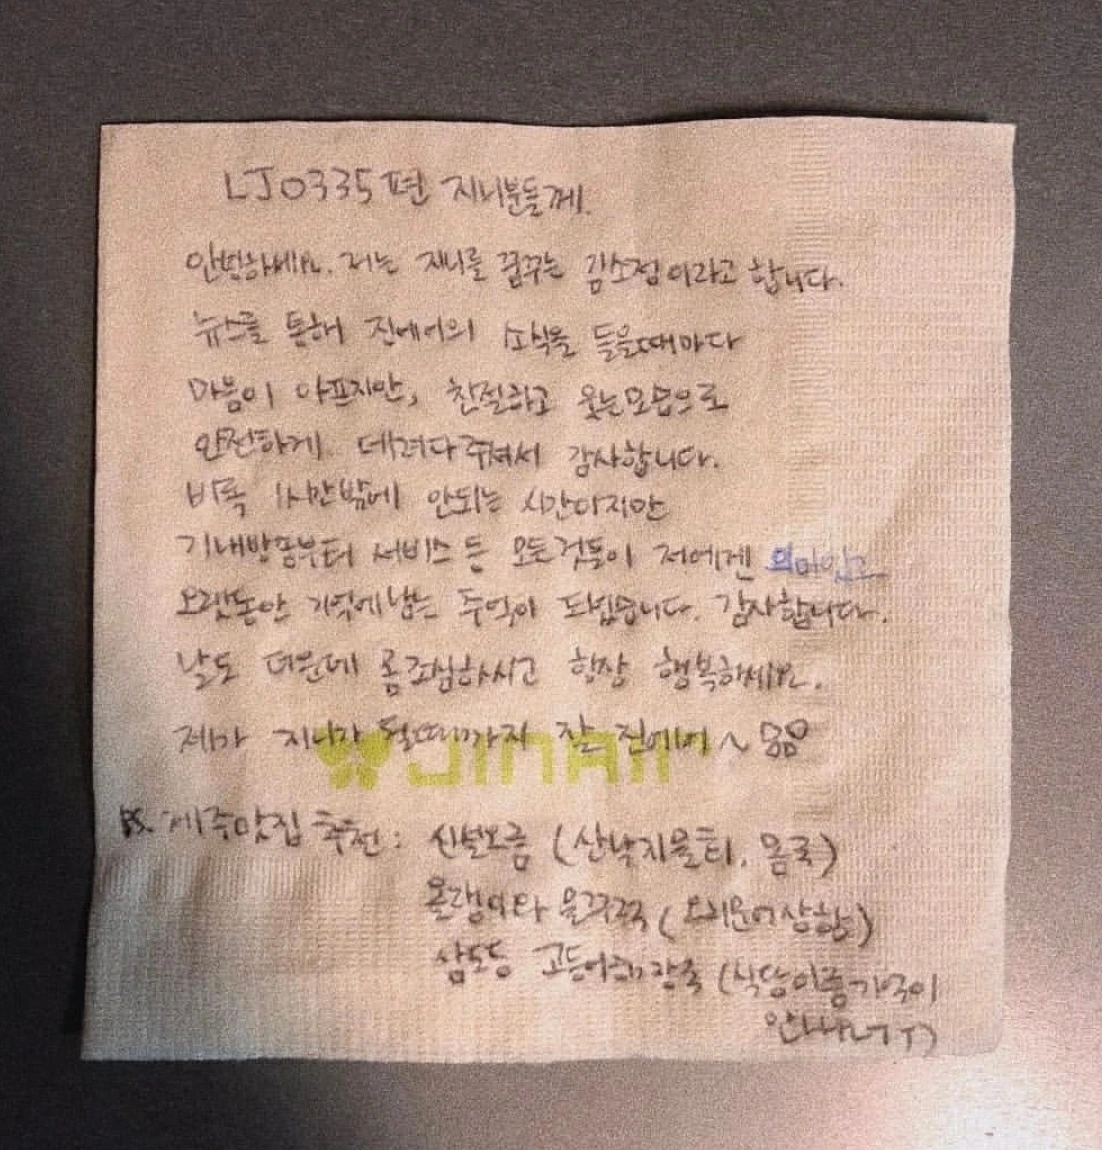 LJ0335편 지니분들께.
안녕하세요. 저는 지니를 꿈꾸는 김소정이라고 합니다.
뉴스를 통해 진에어의 소식을 들을때마다
마음이 아프지만, 친절하고 웃는모습으로
안전하게 데려다주셔서 감사합니다.
비록 1시간밖에 안되는 시간이지만
기내방송부터 서비스 등 모든것들이 저에겐 의미있고
오랫동안 기억에남는 추억이 되었습니다. 감사합니다.
날도 더운데 몸조심하시고 항상 행복하세요.
제가 지니가 될때까지 잘 진에어~
JINAIR
PS. 제주맛집 추천: 신설오름 (산낙지물회, 몸국)
올랭이와 물꾸럭 (
삼도동 고등어해장국 (식당이름기억이
안나네ㅜㅜ)